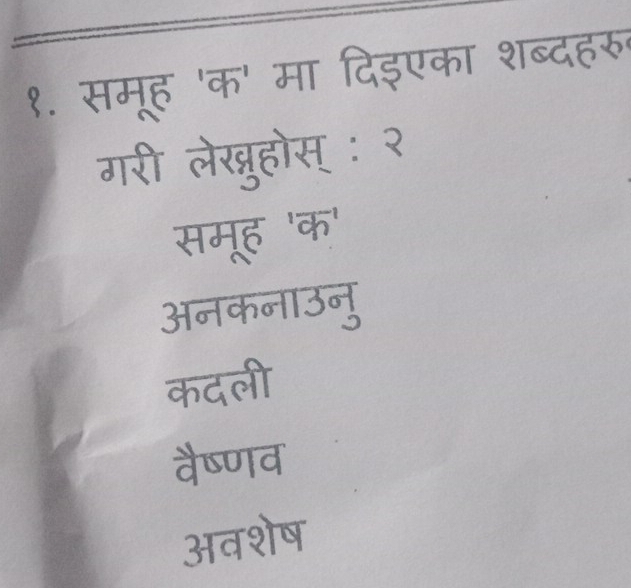 १. समूह 'क' मा दिइएका शब्दहरु
गरी लेख्नुहोस् : २
समूह 'क'
अनकनाउनु
कदली
वैष्णव
अवशेष